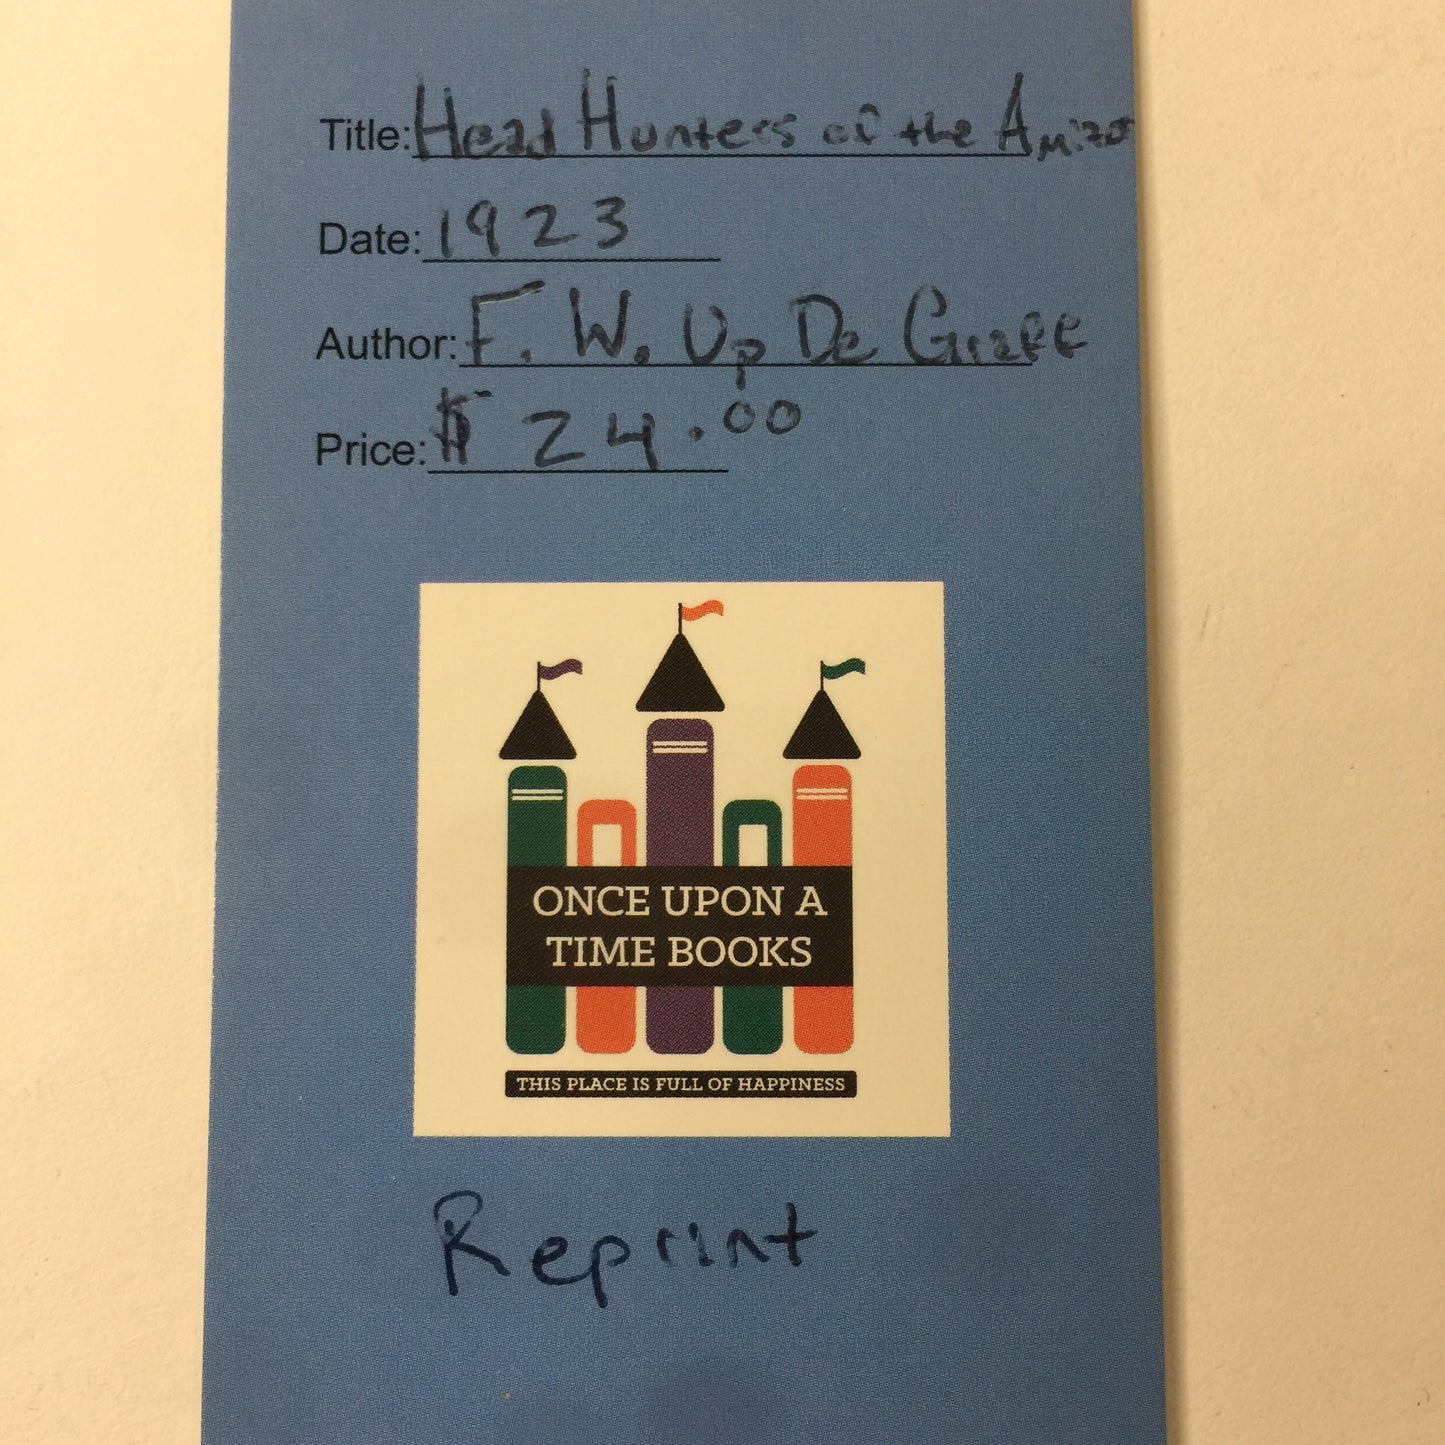 Title: Head Hunters of the Amizo
Date: 1923
Author: F. W. Up De Graff
Price: $ 24.00
ONCE UPON A
TIME BOOKS
THIS PLACE IS FULL OF HAPPINESS
Reprint